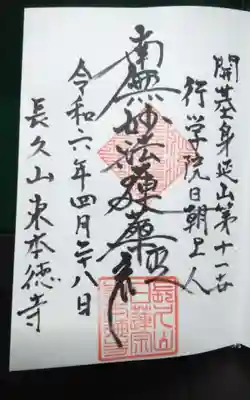 開基身延山第十一世
行学院日朝上人
南無妙法蓮華経
令和六年四月廿八日
長久山東本徳寺
長久山
日蓮宗